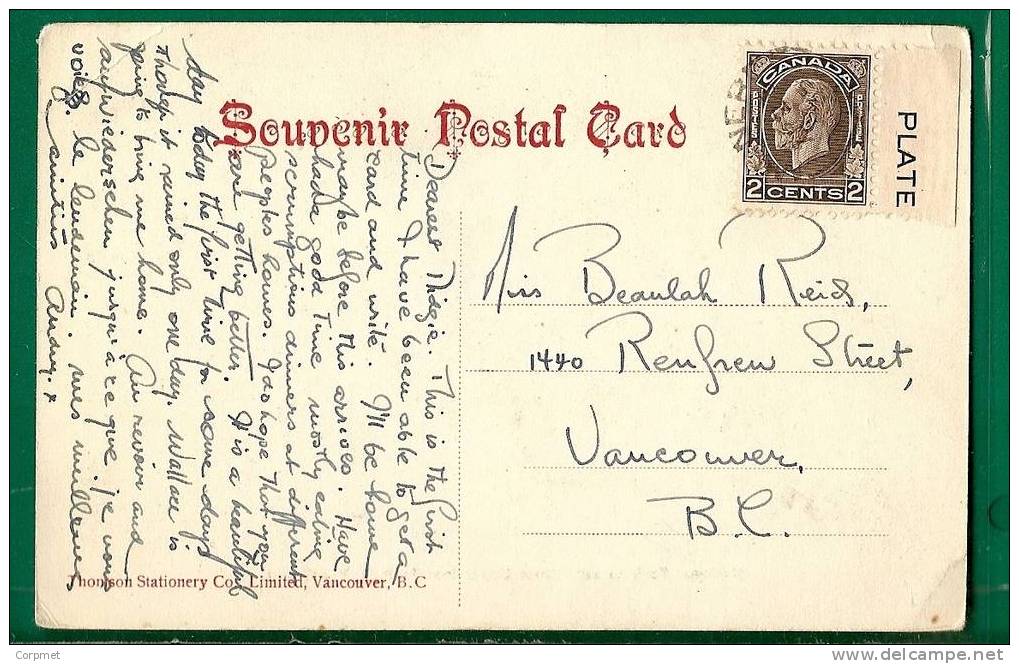 Souvenir Postal Card
CANADA
POSTES
POSTAGE
2 CENTS 2
PLATE
Dearest Midgie. This is the first
time I have been able to get a
card and write. I'll be home
maybe before this arrives. Have
had a good time mostly eating
scrumptious dinners at different
peoples homes. I do hope that you
are getting better. It is a beautiful
day today the first time for some days
though it rained only one day. Wallace is
going to bring me home. Au revoir and
aufwiedersehen jusqu'a ce que je vous
voie le lendemain. mes meilleures
Audry. x
Miss Beaulah Reid,
1440 Renfrew Street,
Vancouver,
B.C.
Thomson Stationery Co., Limited, Vancouver, B.C
Corpmet
delcampe.net